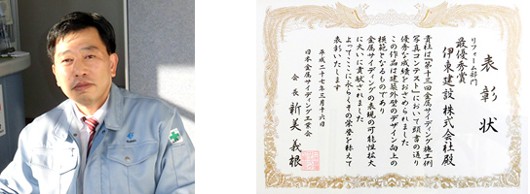 表彰状
リフォーム部門
最優秀賞
伊東建設 株式会社殿
貴社は「第十三回金属サイディング施工例
写真コンテスト」において頭書の通り
優秀な成績をおさめられました
この作品は建築外壁のデザイン向上の
模範となるものであり
金属サイディングの表現の可能性拡大
に大いに貢献されました
よってここに永くその栄誉を称えて
表彰いたします
平成二十七年三月十六日
日本金属サイディング工業会
会長 新美 義根